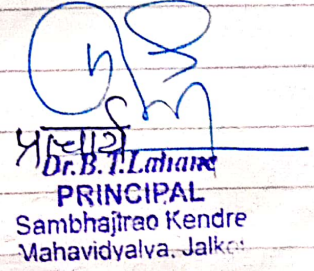 प्राचार्य
Dr.B.T.Lahane
PRINCIPAL
Sambhajirao Kendre
Mahavidyalya, Jalkot